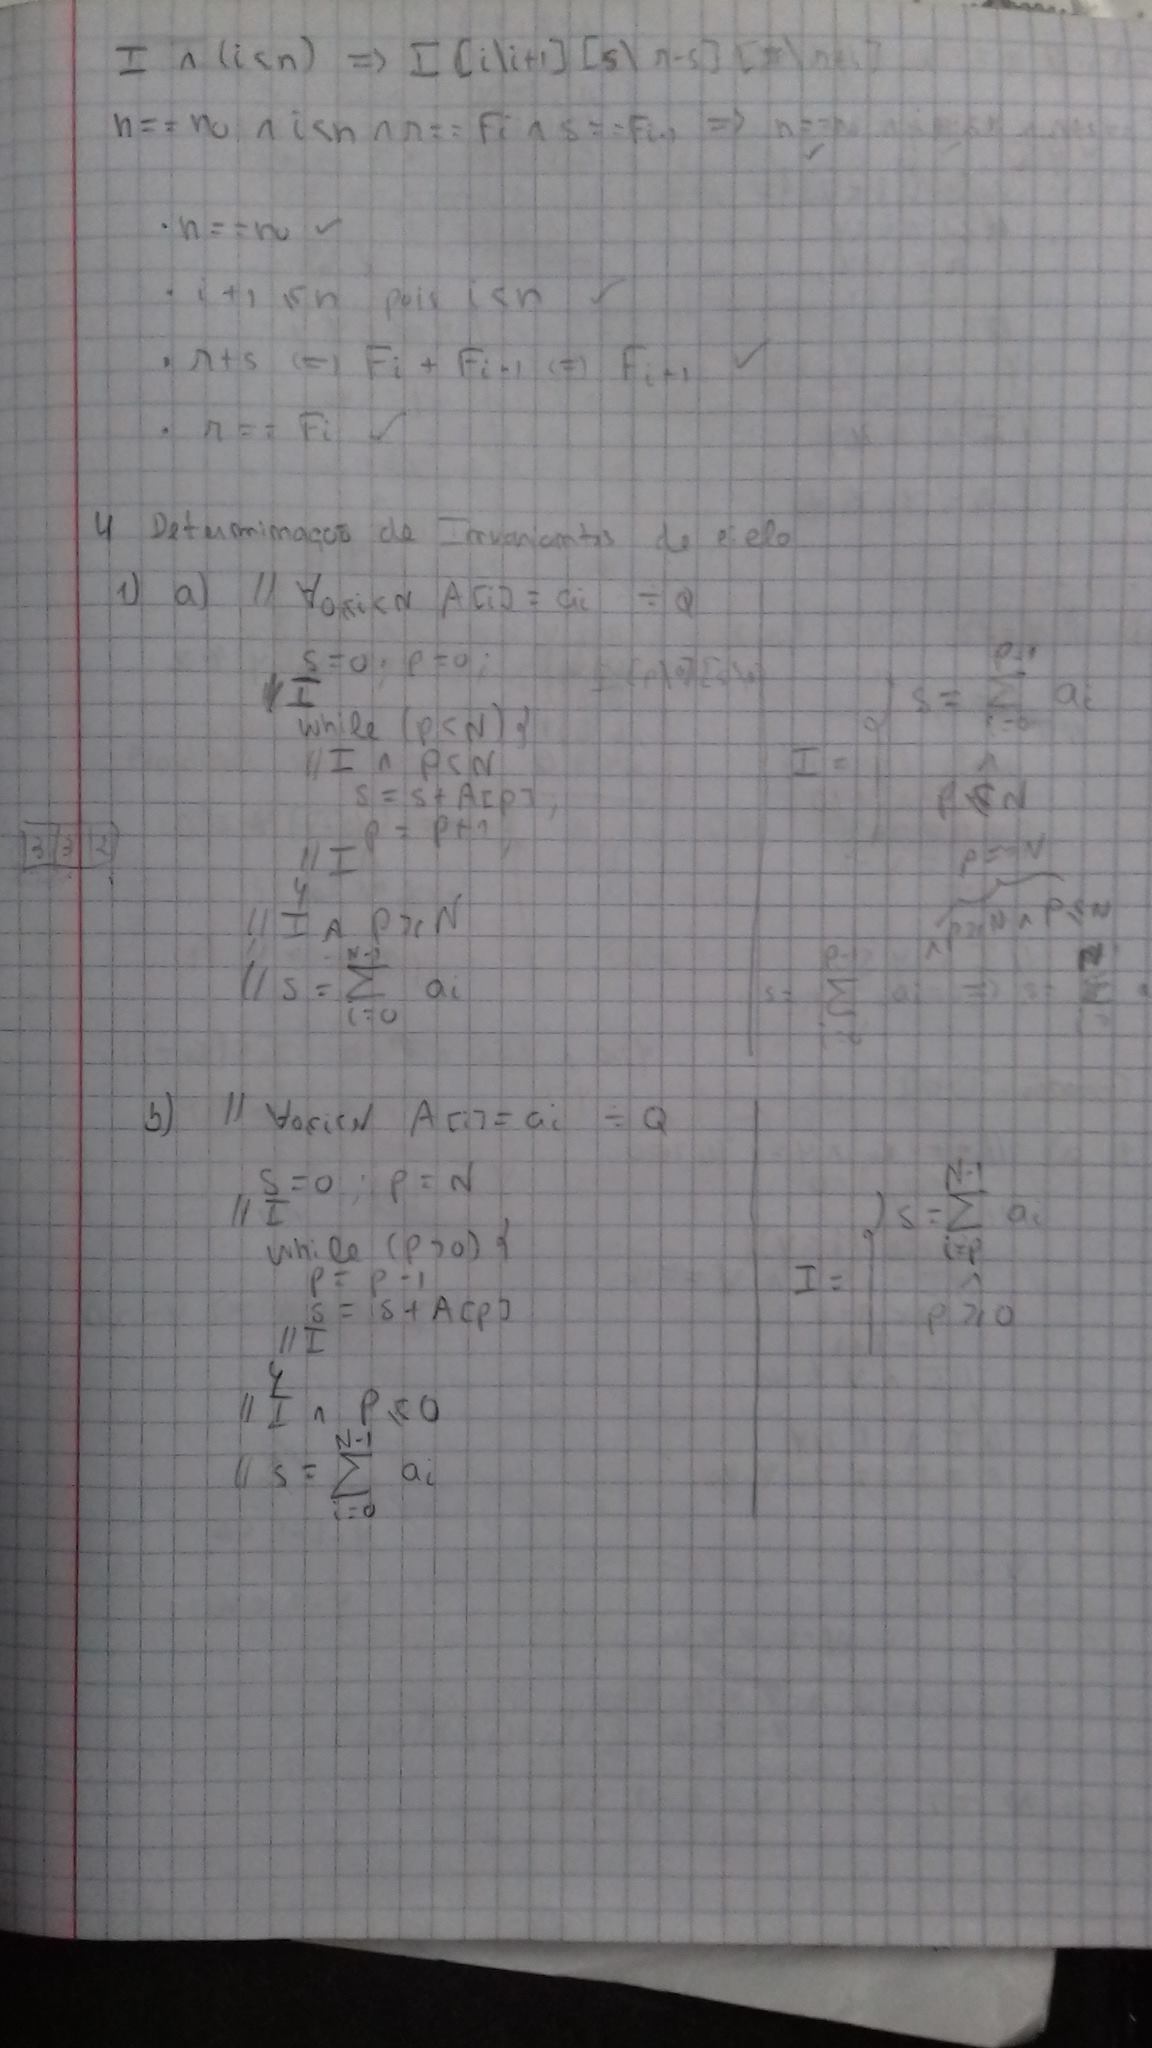 I ∧ (i<n) => I [i\i+1] [s\r-s]
n==n₀ ∧ i<n ∧ r==Fi ∧ s==Fi-1 => n==n₀
· n==n₀ ✓
· i+1 ≤n pois i<n ✓
· r+s (=) Fi + Fi-1 (=) Fi+1 ✓
· r == Fi ✓
4 Determinação de Invariantes de ciclo
1) a) // ∀0≤i<N A[i] = ai ÷ Q
s=0; p=0;
// I
while (p<N) {
// I ∧ p<N
s = s+A[p];
p = p+1;
// I
}
// I ∧ p≥N
// s = ∑ i=0 N-1 ai
I = { s = ∑ i=0 p-1 ai
∧
p ≤ N
p==N
∧ p≥N ∧ p≤N
3 3 2
b) // ∀0≤i<N A[i] = ai ÷ Q
s=0; p=N
// I
while (p>0) {
p = p-1
s = s+A[p]
// I
}
// I ∧ p≤0
// s = ∑ i=0 N-1 ai
I = { s = ∑ i=p N-1 ai
∧
p ≥ 0